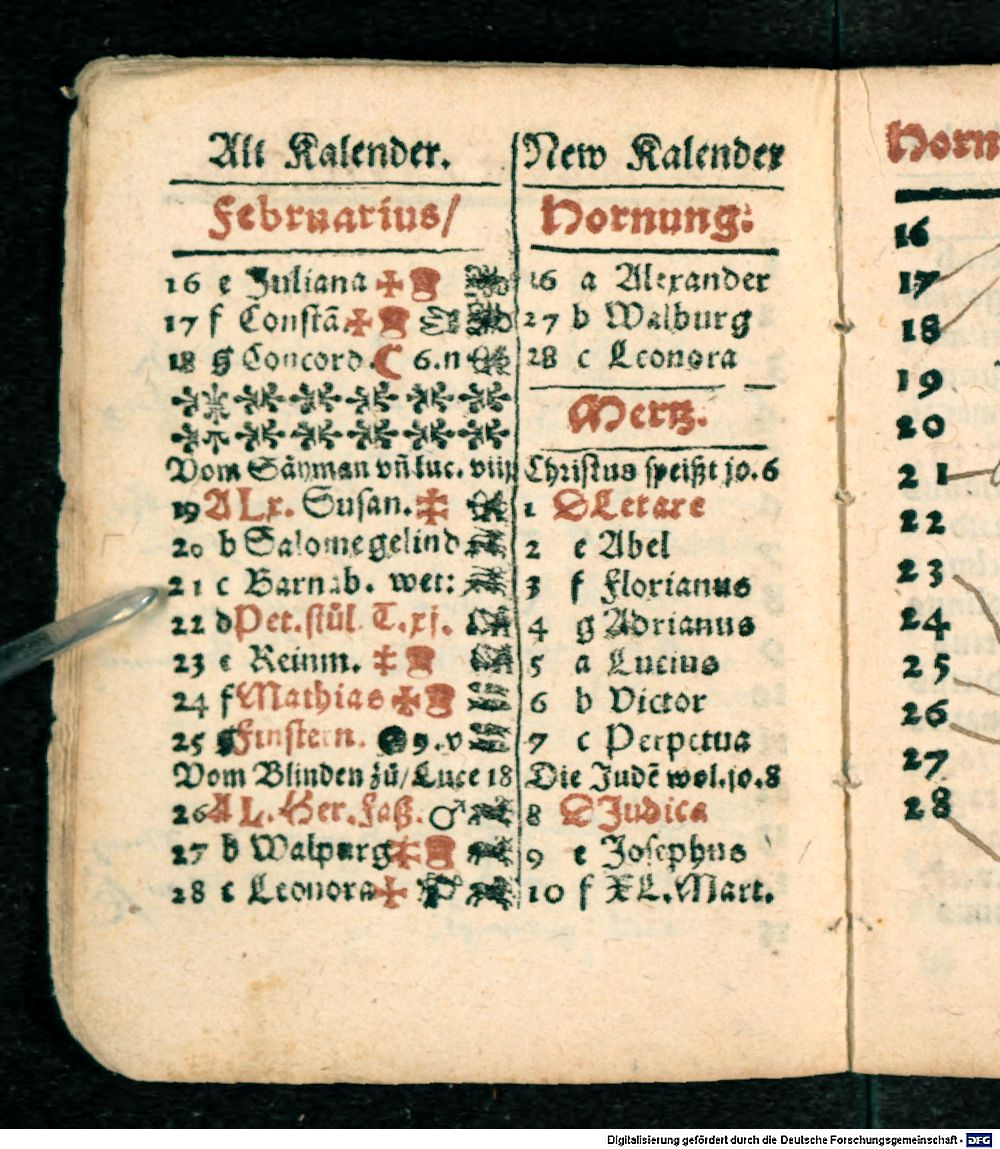 Alt Kalender.
Februarius/
16 e Juliana
17 f Constã.
18 g Concord. 6.n
Vom Säyman vñ luc. viij
19 A Lx. Susan.
20 b Salome gelind
21 c Barnab. wet:
22 d Pet. stůl T.xj.
23 e Reinm.
24 f Mathias
25 g Finstern. 9.v
Vom Blinden zů/Luce 18
26 A L. Her. Faß. ♂
27 b Walpurg
28 c Leonora
New Kalender
Hornung:
26 a Alexander
27 b Walburg
28 c Leonora
Mertz.
Christus speißt jo.6
1 D Letare
2 e Abel
3 f Florianus
4 g Adrianus
5 a Lucius
6 b Victor
7 c Perpetua
Die Judẽ wol.jo.8
8 D Judica
9 e Josephus
10 f XL.Mart.
Horn
16
17
18
19
20
21
22
23
24
25
26
27
28
Digitalisierung gefördert durch die Deutsche Forschungsgemeinschaft - DFG